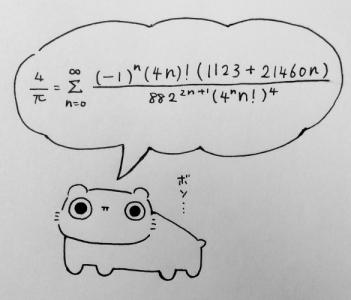 4/π = Σ_{n=0}^{∞} (-1)^n (4n)! (1123 + 21460n) / 882^{2n+1} (4^n n!)^4
π
ボソ…